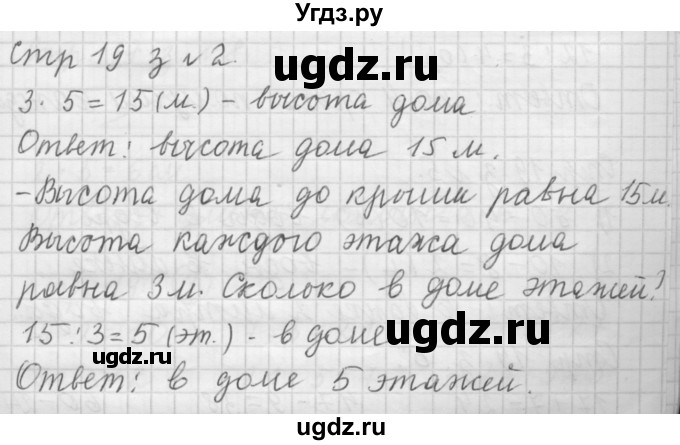 Угдз.ру
Стр 19 з № 2.
ugdz.ru
3 · 5 = 15 (м.) - высота дома
Ответ: высота дома 15 м.
ugdz.ru
-Высота дома до крыши равна 15 м.
Высота каждого этажа дома
ugdz.ru
равна 3 м. Сколько в доме этажей?
15 : 3 = 5 (эт.) - в доме
ugdz.ru
ugdz.ru
Ответ: в доме 5 этажей.
ugdz.ru